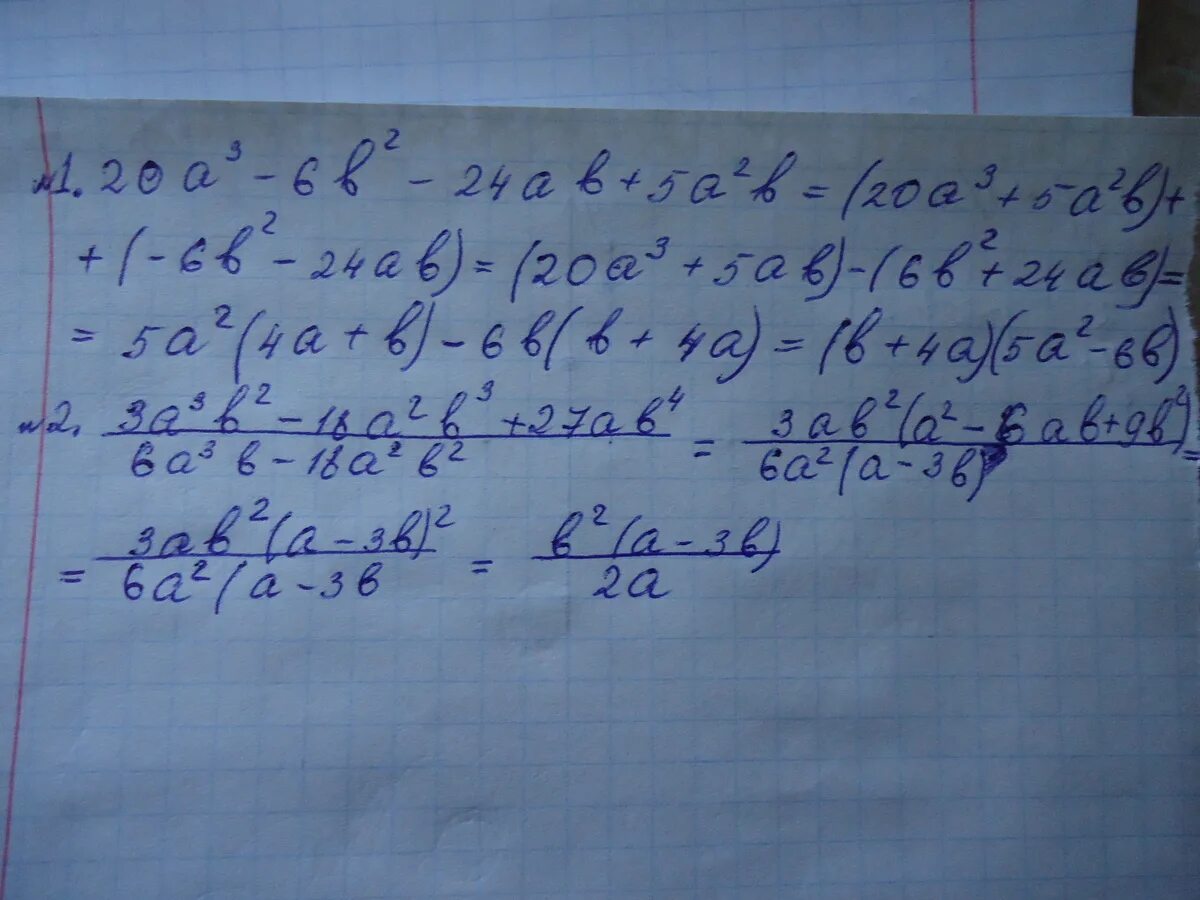 №1. 20a³ - 6b² - 24ab + 5a²b = (20a³ + 5a²b) +
+ (-6b² - 24ab) = (20a³ + 5ab) - (6b² + 24ab) =
= 5a²(4a + b) - 6b(b + 4a) = (b + 4a)(5a² - 6b)
№2. 3a³b² - 18a²b³ + 27ab⁴ / 6a³b - 18a²b² = 3ab²(a² - 6ab + 9b²) / 6a²(a - 3b) =
= 3ab²(a - 3b)² / 6a²(a - 3b = b²(a - 3b) / 2a